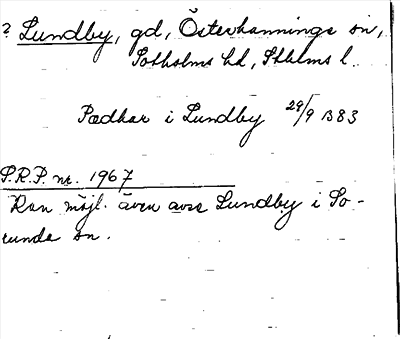 ? Lundby, gd, Österhanninge sn,
Sotholms hd, Sthlms l.
Pædhar i Lundby 29/9 1383
S.R.P. nr. 1967
Kan möjl. även avse Lundby i So-
runda sn.